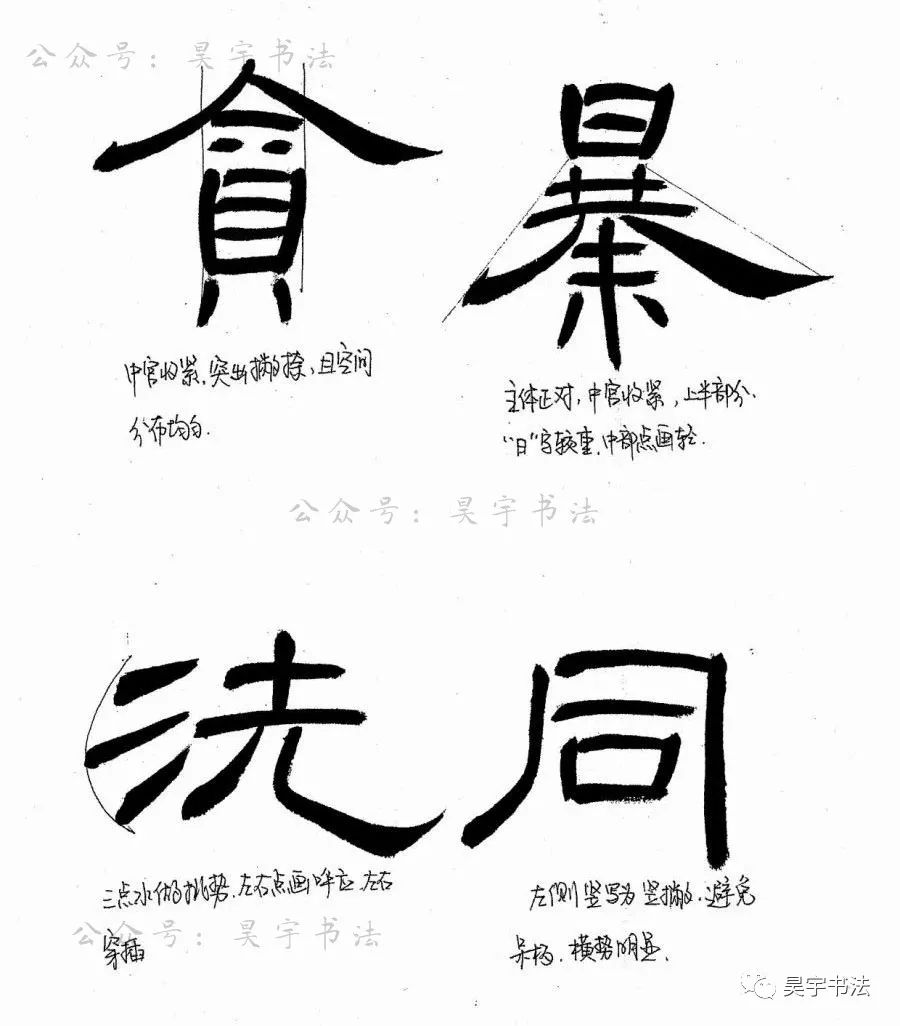 公众号：昊宇书法
貪 暴
中宫收紧,突出撇捺,且空间
分布均匀.
主体正对,中宫收紧,上半部分,
“日”字较重,中部点画轻.
公众号：昊宇书法
洗 同
三点水做势,左右点画呼应,左右
穿插
左侧竖写为竖撇,避免
呆板,横势明显.
公众号：昊宇书法
昊宇书法